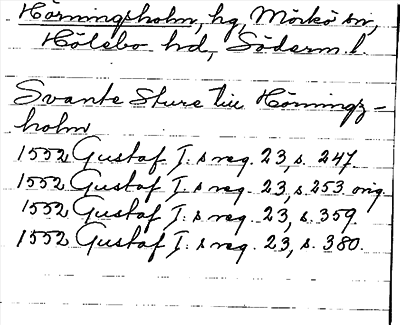 Hörningsholm, hg, Mörkö sn,
Hölebo hd, Söderm. l.
Svante Sture till Hörnings-
holm
1552 Gustaf I: s reg. 23, s. 247.
1552 Gustaf I: s reg. 23, s. 253 orig.
1552 Gustaf I: s reg. 23, s. 359.
1552 Gustaf I: s reg. 23, s. 380.